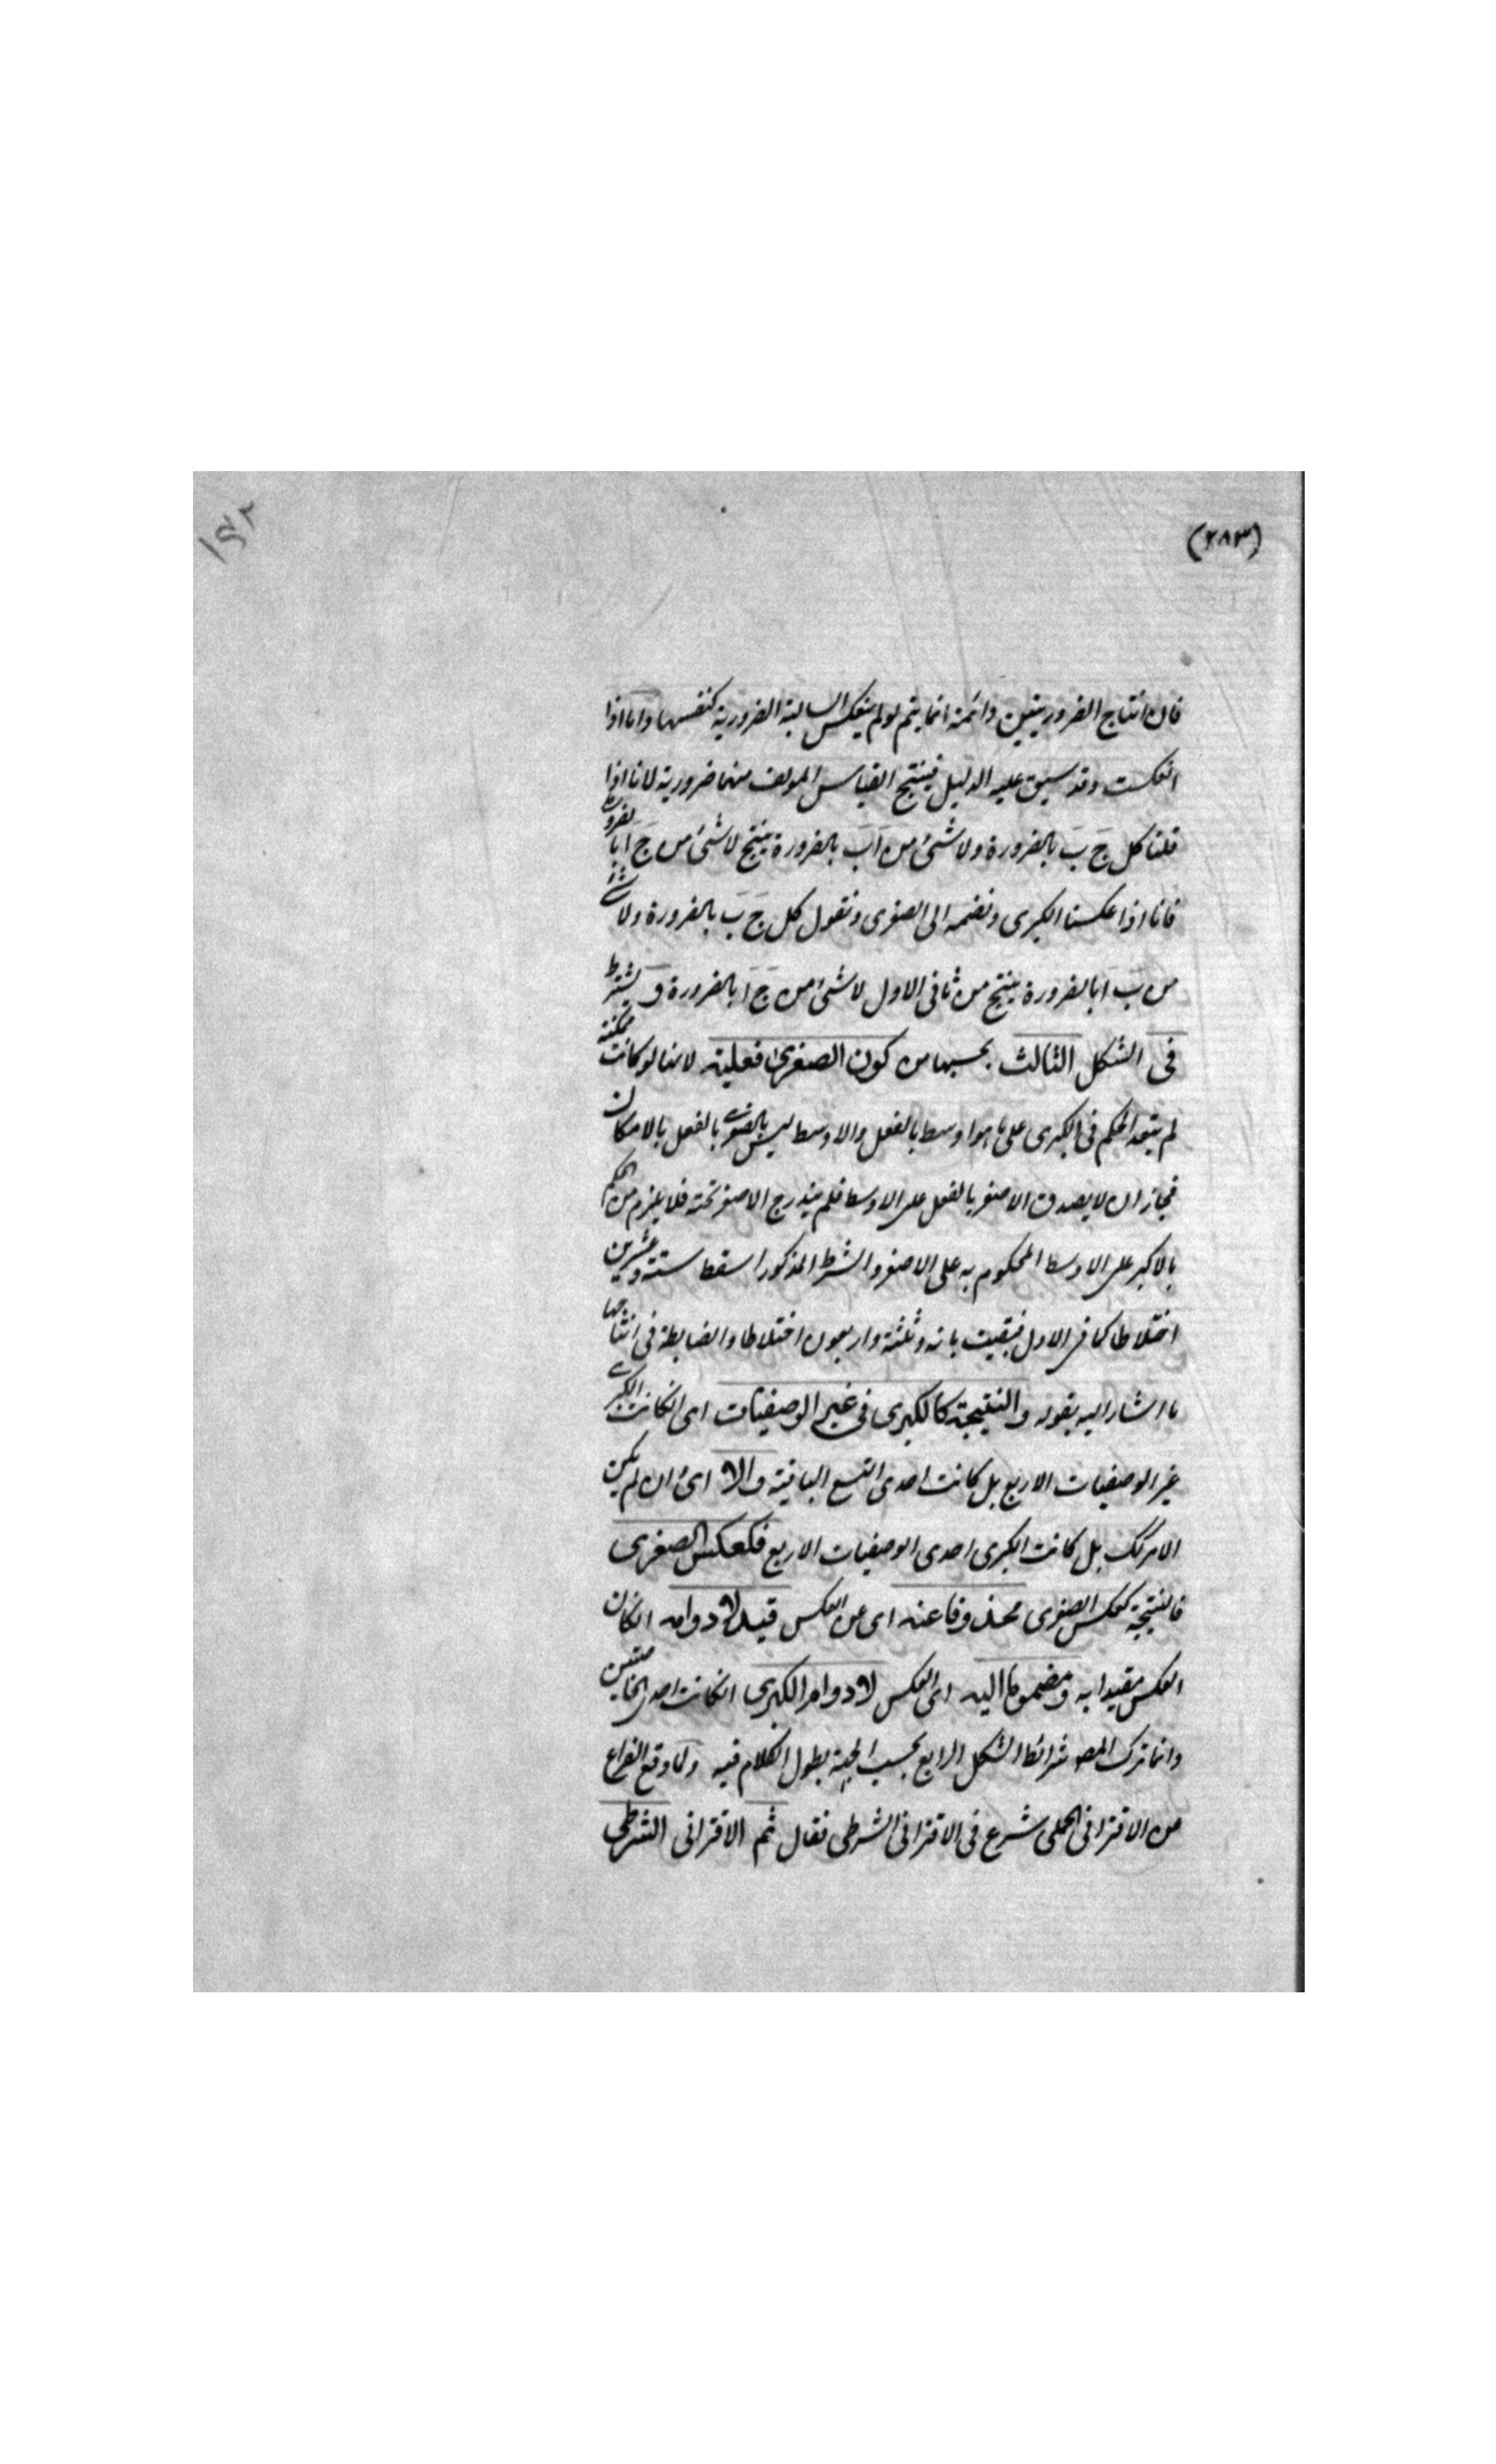 (٢٨٣)
١٤٢
فان انتاج الضروريتين دائمة انما يتم لو لم ينعكس السالبة الضرورية كنفسها واما اذا
انعكست وقد سيق عليه الدليل فينتج القياس المولف منهما ضرورية لانا اذا
قلنا كل ج ب بالضرورة ولا شئ من ا ب بالضرورة ينتج لا شئ من ج ا بالضرورة
فانا اذا عكسنا الكبرى ونضمه الى الصغرى ونقول كل ج ب بالضرورة ولا شئ
من ب ا بالضرورة ينتج من ثانى الاول لا شئ من ج ا بالضرورة و يشترط
فى الشكل الثالث بحسبها من كون الصغرى فعلية لانها لو كانت ممكنة
لم يتعد الحكم فى الكبرى على ما هو اوسط بالفعل والاوسط ليس بالفعل بالامكان
فجاز ان لا يصدق الاصغر بالفعل على الاوسط فلم يندرج الاصغر تحته فلا يلزم من الحكم
بالاكبر على الاوسط المحكوم به على الاصغر والشرط المذكور اسقط ستة وعشرين
اختلاطا كما فى الاول فبقيت مائة وثلثة واربعون اختلاطا والضابطة فى انتاجها
ما اشار اليه بقوله والنتيجة كالكبرى فى غير الوصفيات اى انكانت الكبرى
غير الوصفيات الاربع بل كانت احدى التسع الباقية والا اى ان لم يكن
الامر كك بل كانت الكبرى احدى الوصفيات الاربع فكعكس الصغرى
فالنتيجة كعكس الصغرى محذوفا عنه اى عن العكس قيد لا دوامه انكان
العكس مقيدا به و مضموما اليه اى العكس لا دوام الكبرى انكانت احدى الخاصتين
وانما ترك المصـ شرائط الشكل الرابع بحسب الجهة بطول الكلام فيه ولما وقع الفراغ
من الاقترانى الحملى شرع فى الاقترانى الشرطى فقال ثم الاقترانى الشرطى